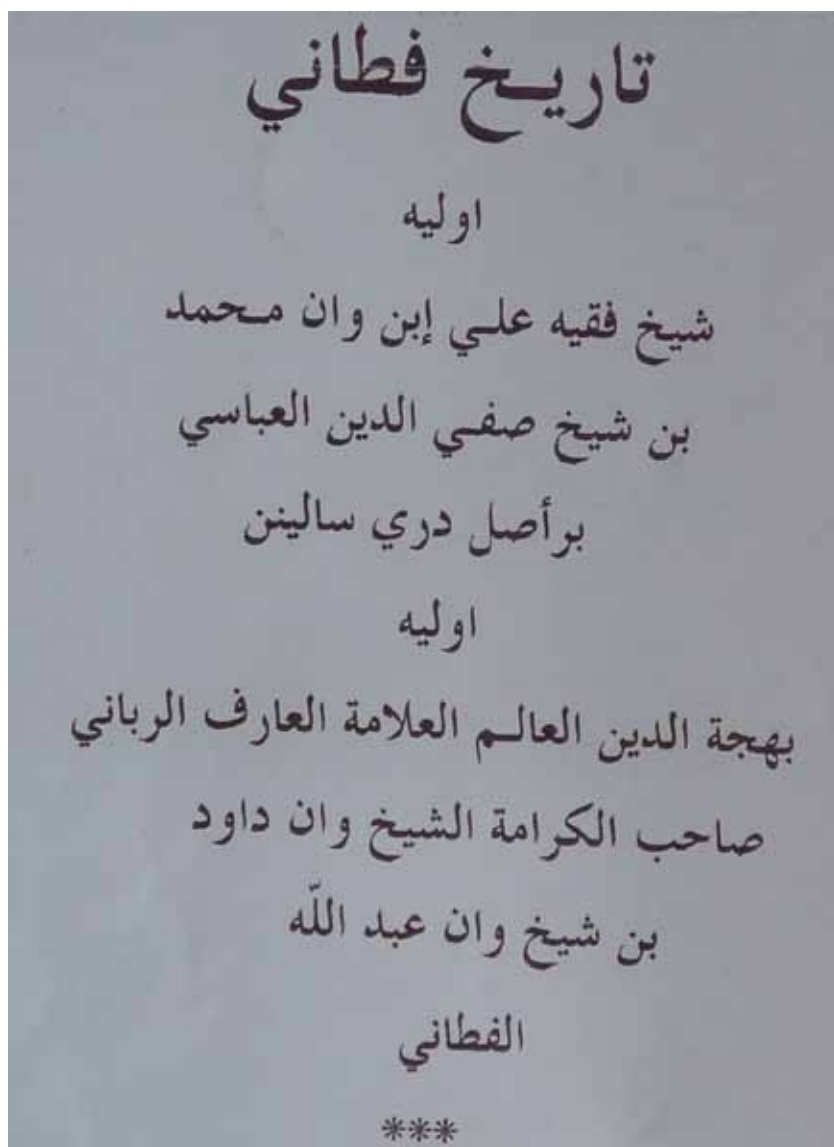 تاريخ فطاني
اوليه
شيخ فقيه علي إبن وان محمد
بن شيخ صفي الدين العباسي
برأصل دري سالينن
اوليه
بهجة الدين العالم العلامة العارف الرباني
صاحب الكرامة الشيخ وان داود
بن شيخ وان عبد اللّه
الفطاني
***